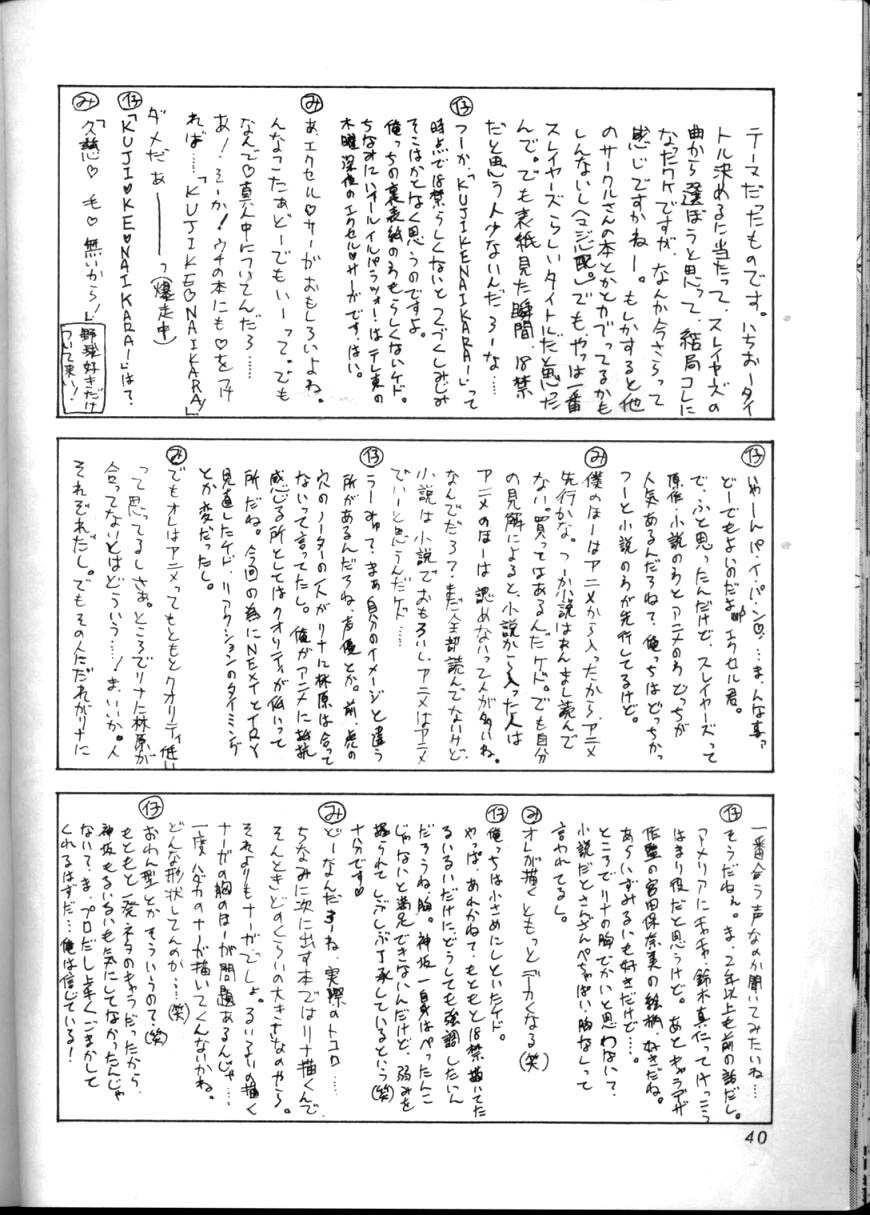 テーマだったものです。いちおータイ
トル決めるに当たって、スレイヤーズの
曲から選ぼうと思って、結局コレに
なったワケですが、なんか今さらって
感じですかねー。もしかすると他
のサークルさんの本とかとカブってるかも
しんないし（マジ心配。）でも、やっぱ一番
スレイヤーズらしいタイトルだと思った
んで。でも表紙見た瞬間、18禁
だと思う人少ないんだろーな……
仔 つーか、「KUJIKENAIKARA!」って
時点で18禁らしくないとつくづくしみじみ
そこはかとなく思うのですよ。
俺っちの裏表紙のわもらしくないケド。
ちなみに、オールイルパラッツォ!はテレ東の
木曜深夜のエクセル♡サーガです、はい。
み あ、エクセル♡サーガおもしろいよね。
んなこたぁどーでもいーって。でも
なんで♡真ん中についてんだろ……
あ!そーか!ウチの本にも♡をつけ
れば…「KUJIKE♡NAIKARA!」
ダメだぁ――――っ(爆走中)
仔 「KUJI♡KE♡NAIKARA!」は?
み 「久慈♡毛♡無いから!」
野球好きだけ
ついて来い!
仔 いやーんパ・イ・パン♡…ま、んな事
どーでもよいのだよ エクセル君。
で、ふと思ったんだけど、スレイヤーズって
原作・小説のわとアニメのわ どっちが
人気あるんだろねて、俺っちはどっちかっ
つーと小説のわが先行してるけど。
み 僕のほーはアニメから入ったから、アニメ
先行かな。つーか小説はあんまし読んで
ない。買ってはあるんだケド。でも自分
の見解によると、小説から入った人は
アニメのほーは認めないって人が多いね。
なんでだろ?まだ全部読んでないけど、
小説は小説でおもろいし、アニメはアニメ
でいーと思うんだケド……
仔 うーみゅ?まあ自分のイメージと違う
所があるんだろね、声優とか。前、虎の
穴のノーターの人がリナに林原は合って
ないって言ってたし。俺がアニメに抵抗
感じる所としてはクオリティが低いって
所だね。今回の為にNEXTとTRY
見直したケド、リアクションのタイミング
とか変だったし。
み でもオレはアニメってもともとクオリティ低い
って思ってるしさぁ。ところでリナに林原が
合ってないとはどういう…!ま、いいか。人
それぞれだし。でもその人ただれがリナに
一番合う声なのか聞いてみたいね……
仔 そうだねぇ。ま、2年以上も前の話だし。
アメリアにチャチャ、鈴木真仁ってけっこう
はまり役だと思うけど。あとキャラデザ
作監の宮田保奈美の絵柄、好きだね。
あらいずみるいも好きだけど…。
ところでリナの胸でかいと思わない?
小説だとさんざんぺちゃぱい胸なしって
言われてるし。
み オレが描くともっとデカくなる(笑)
仔 俺っちは小さめにしといたケド。
やっぱ、あれかねて、もともと18禁描いてた
るいるいだけに、どうしても強調したいん
だろうね、胸。神坂一自身はぺったんこ
じゃないと満足できないんだけど、弱みを
握られてしぶしぶ了承しているという(笑)
十分です♡
み どーなんだろーね、実際のトコロ……
ちなみに次に出す本ではリナ描くんで、
そんときどのくらいの大きさなのやら。
それよりもナーガでしょ。るいるいの描く
ナーガの胸のほーが問題あるんじゃ…
一度、ハダカのナーガ描いてくんないかね。
どんな形状してんのか……(笑)
仔 おわん型とかそういうので(笑)
もともと一発ネタのキャラだったから、
神坂もるいるいも気にしてなかったんじゃ
ないて、ま、プロだし上手くごまかして
くれるはずだ…俺は信じている!
40